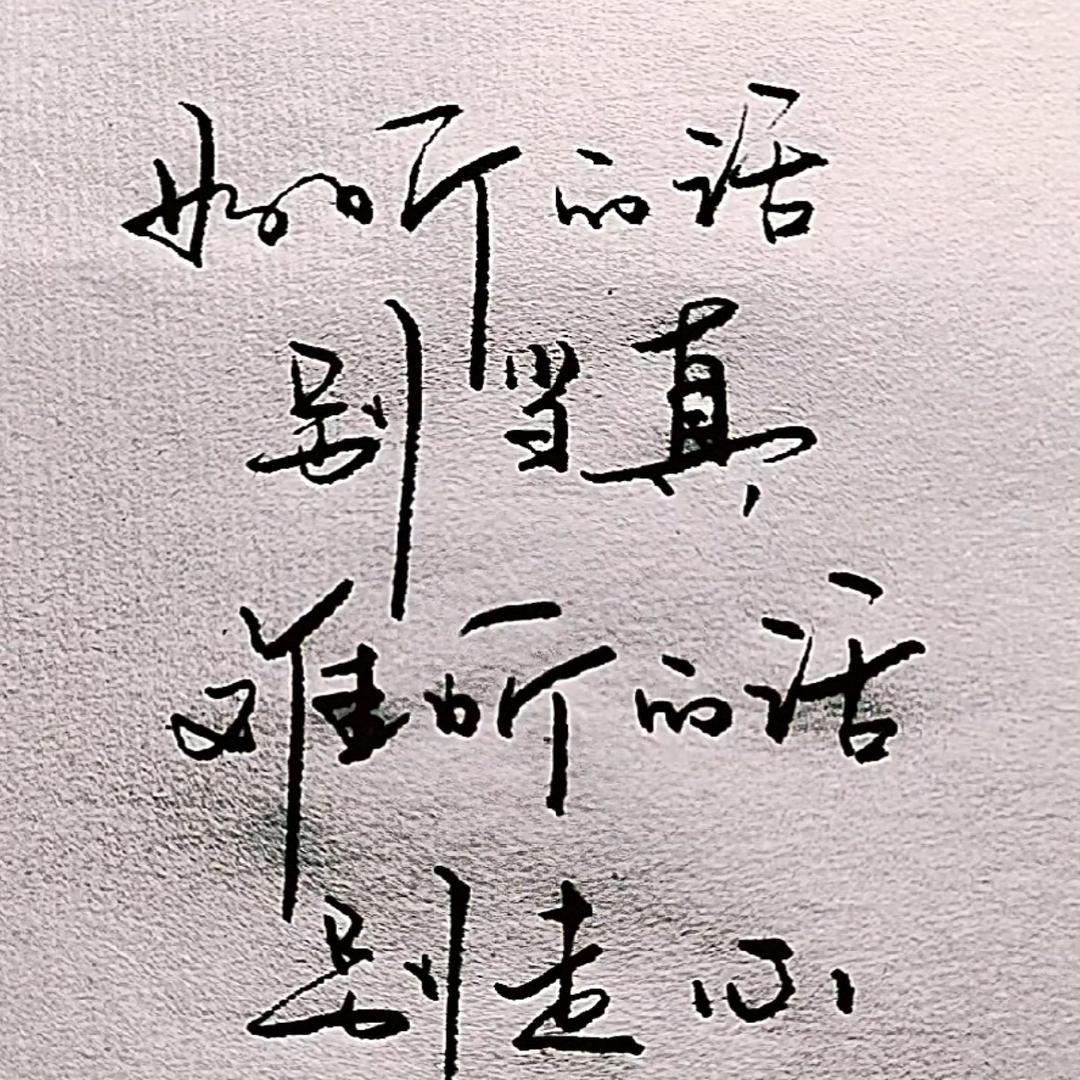 好听的话
别当真
难听的话
别走心